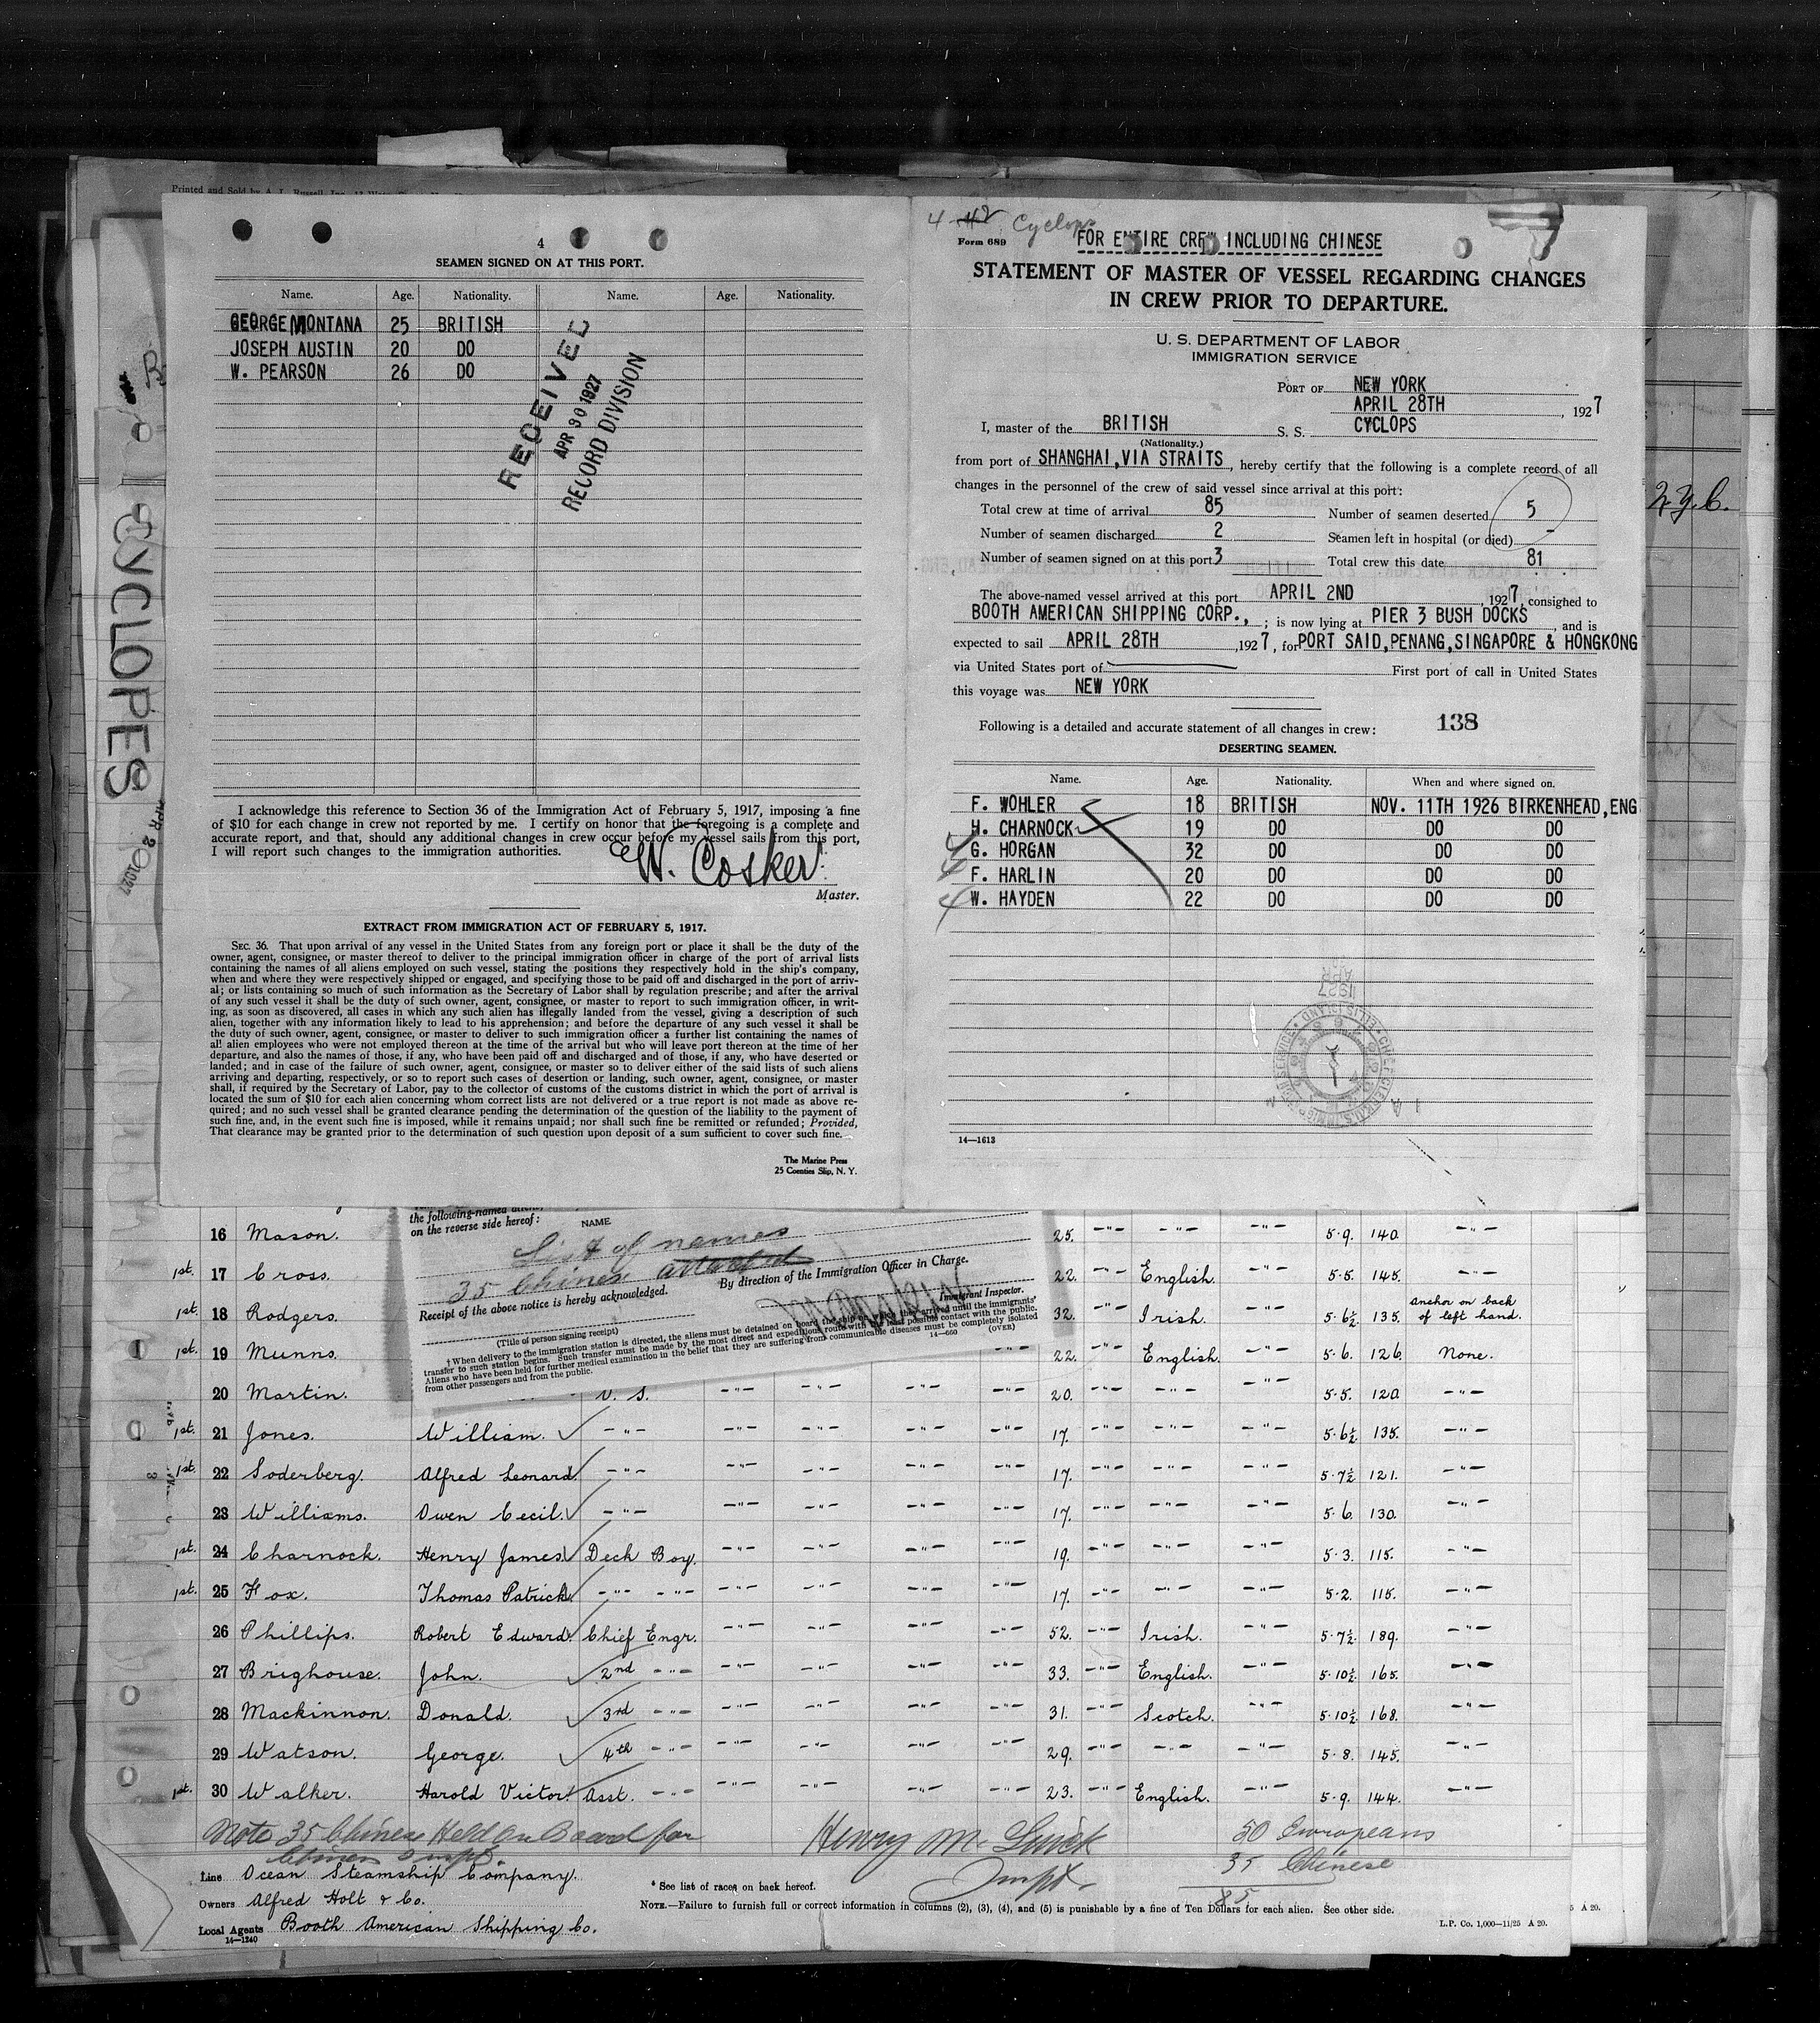 Printed and Sold by
4
SEAMEN SIGNED ON AT THIS PORT.
Name. Age. Nationality. Name. Age. Nationality.
GEORGE MONTANA 25 BRITISH
JOSEPH AUSTIN 20 DO
W. PEARSON 26 DO
RECEIVED
APR 30 1927
RECORD DIVISION
I acknowledge this reference to Section 36 of the Immigration Act of February 5, 1917, imposing a fine
of $10 for each change in crew not reported by me. I certify on honor that the foregoing is a complete and
accurate report, and that, should any additional changes in crew occur before my vessel sails from this port,
I will report such changes to the immigration authorities.
W. Cosker
Master.
EXTRACT FROM IMMIGRATION ACT OF FEBRUARY 5, 1917.
SEC. 36. That upon arrival of any vessel in the United States from any foreign port or place it shall be the duty of the
owner, agent, consignee, or master thereof to deliver to the principal immigration officer in charge of the port of arrival lists
containing the names of all aliens employed on such vessel, stating the positions they respectively hold in the ship's company,
when and where they were respectively shipped or engaged, and specifying those to be paid off and discharged in the port of arriv-
al; or lists containing so much of such information as the Secretary of Labor shall by regulation prescribe; and after the arrival
of any such vessel it shall be the duty of such owner, agent, consignee, or master to report to such immigration officer, in writ-
ing, as soon as discovered, all cases in which any such alien has illegally landed from the vessel, giving a description of such
alien, together with any information likely to lead to his apprehension; and before the departure of any such vessel it shall be
the duty of such owner, agent, consignee, or master to deliver to such immigration officer a further list containing the names of
all alien employees who were not employed thereon at the time of the arrival but who will leave port thereon at the time of her
departure, and also the names of those, if any, who have been paid off and discharged and of those, if any, who have deserted or
landed; and in case of the failure of such owner, agent, consignee, or master so to deliver either of the said lists of such aliens
arriving and departing, respectively, or so to report such cases of desertion or landing, such owner, agent, consignee, or master
shall, if required by the Secretary of Labor, pay to the collector of customs of the customs district in which the port of arrival is
located the sum of $10 for each alien concerning whom correct lists are not delivered or a true report is not made as above re-
quired; and no such vessel shall be granted clearance pending the determination of the question of the liability to the payment of
such fine, and, in the event such fine is imposed, while it remains unpaid; nor shall such fine be remitted or refunded; Provided,
That clearance may be granted prior to the determination of such question upon deposit of a sum sufficient to cover such fine.
The Marine Press
25 Coenties Slip, N. Y.
4 42 Cyclops
Form 689
FOR ENTIRE CREW INCLUDING CHINESE
STATEMENT OF MASTER OF VESSEL REGARDING CHANGES
IN CREW PRIOR TO DEPARTURE.
U. S. DEPARTMENT OF LABOR
IMMIGRATION SERVICE
PORT OF NEW YORK
APRIL 28TH, 1927
I, master of the BRITISH S. S. CYCLOPS
(Nationality.)
from port of SHANGHAI, VIA STRAITS, hereby certify that the following is a complete record of all
changes in the personnel of the crew of said vessel since arrival at this port:
Total crew at time of arrival 85 Number of seamen deserted 5
Number of seamen discharged 2 Seamen left in hospital (or died) -
Number of seamen signed on at this port 3 Total crew this date 81
The above-named vessel arrived at this port APRIL 2ND, 1927, consigned to
BOOTH AMERICAN SHIPPING CORP., ; is now lying at PIER 3 BUSH DOCKS, and is
expected to sail APRIL 28TH, 1927, for PORT SAID, PENANG, SINGAPORE & HONGKONG
via United States port of First port of call in United States
this voyage was NEW YORK
Following is a detailed and accurate statement of all changes in crew: 138
DESERTING SEAMEN.
Name. Age. Nationality. When and where signed on.
F. WOHLER 18 BRITISH NOV. 11TH 1926 BIRKENHEAD, ENG
H. CHARNOCK 19 DO DO DO
G. HORGAN 32 DO DO DO
F. HARLIN 20 DO DO DO
W. HAYDEN 22 DO DO DO
14—1613
CYCLOPES
the following-named aliens,
on the reverse side hereof:
NAME
List of names
35 Chinese attached
By direction of the Immigration Officer in Charge.
Receipt of the above notice is hereby acknowledged.
Immigrant Inspector.
(Title of person signing receipt)
† When delivery to the immigration station is directed, the aliens must be detained on board the ship on which they arrived until the immigrants'
transfer to such station begins. Such transfer must be made by the most direct and expeditious route with the least possible contact with the public.
Aliens who have been held for further medical examination in the belief that they are suffering from communicable diseases must be completely isolated
from other passengers and from the public.
14—660 (OVER)
16 Mason. 25. -"- -"- -"- 5-9. 140. -"-
1st. 17 Cross. 22. -"- English. -"- 5-5. 145. -"-
1st. 18 Rodgers. 32. -"- Irish. -"- 5-6½ 135. anchor on back of left hand.
1st. 19 Munns. -"- 22. -"- English. -"- 5-6. 126. None.
20 Martin. -"- -"- -"- -"- 20. -"- -"- -"- 5-5. 120. -"-
1st. 21 Jones. William. -"- -"- -"- -"- -"- 17. -"- -"- -"- 5-6½ 135. -"-
1st. 22 Soderberg. Alfred Leonard. -"- -"- -"- -"- -"- 17. -"- -"- -"- 5-7½ 121. -"-
23 Williams. Owen Cecil. -"- -"- -"- -"- -"- 17. -"- -"- -"- 5-6. 130. -"-
1st. 24 Charnock. Henry James. Deck Boy. -"- -"- -"- -"- 19. -"- -"- -"- 5-3. 115. -"-
1st. 25 Fox. Thomas Patrick. -"- -"- -"- -"- -"- -"- 17. -"- -"- -"- 5-2. 115. -"-
26 Phillips. Robert Edward. Chief Engr. -"- -"- -"- -"- 52. -"- Irish. -"- 5-7½ 189. -"-
27 Brighouse. John. 2nd -"- -"- -"- -"- -"- 33. -"- English. -"- 5-10½ 165. -"-
28 Mackinnon. Donald. 3rd -"- -"- -"- -"- -"- 31. -"- Scotch. -"- 5-10½ 168. -"-
29 Watson. George. 4th -"- -"- -"- -"- -"- 29. -"- -"- -"- 5-8. 145. -"-
1st. 30 Walker. Harold Victor. Asst. -"- -"- -"- -"- -"- 23. -"- English. -"- 5-9. 144. -"-
Note 35 Chinese Held on Board for
Chinese Inspt.
Inspt.
50 Europeans
35 Chinese
85
Line Ocean Steamship Company.
Owners Alfred Holt & Co.
Local Agents Booth American Shipping Co.
14—1240
* See list of races on back hereof.
NOTE.—Failure to furnish full or correct information in columns (2), (3), (4), and (5) is punishable by a fine of Ten Dollars for each alien. See other side.
L.P. Co. 1,000—11/25 A 20.